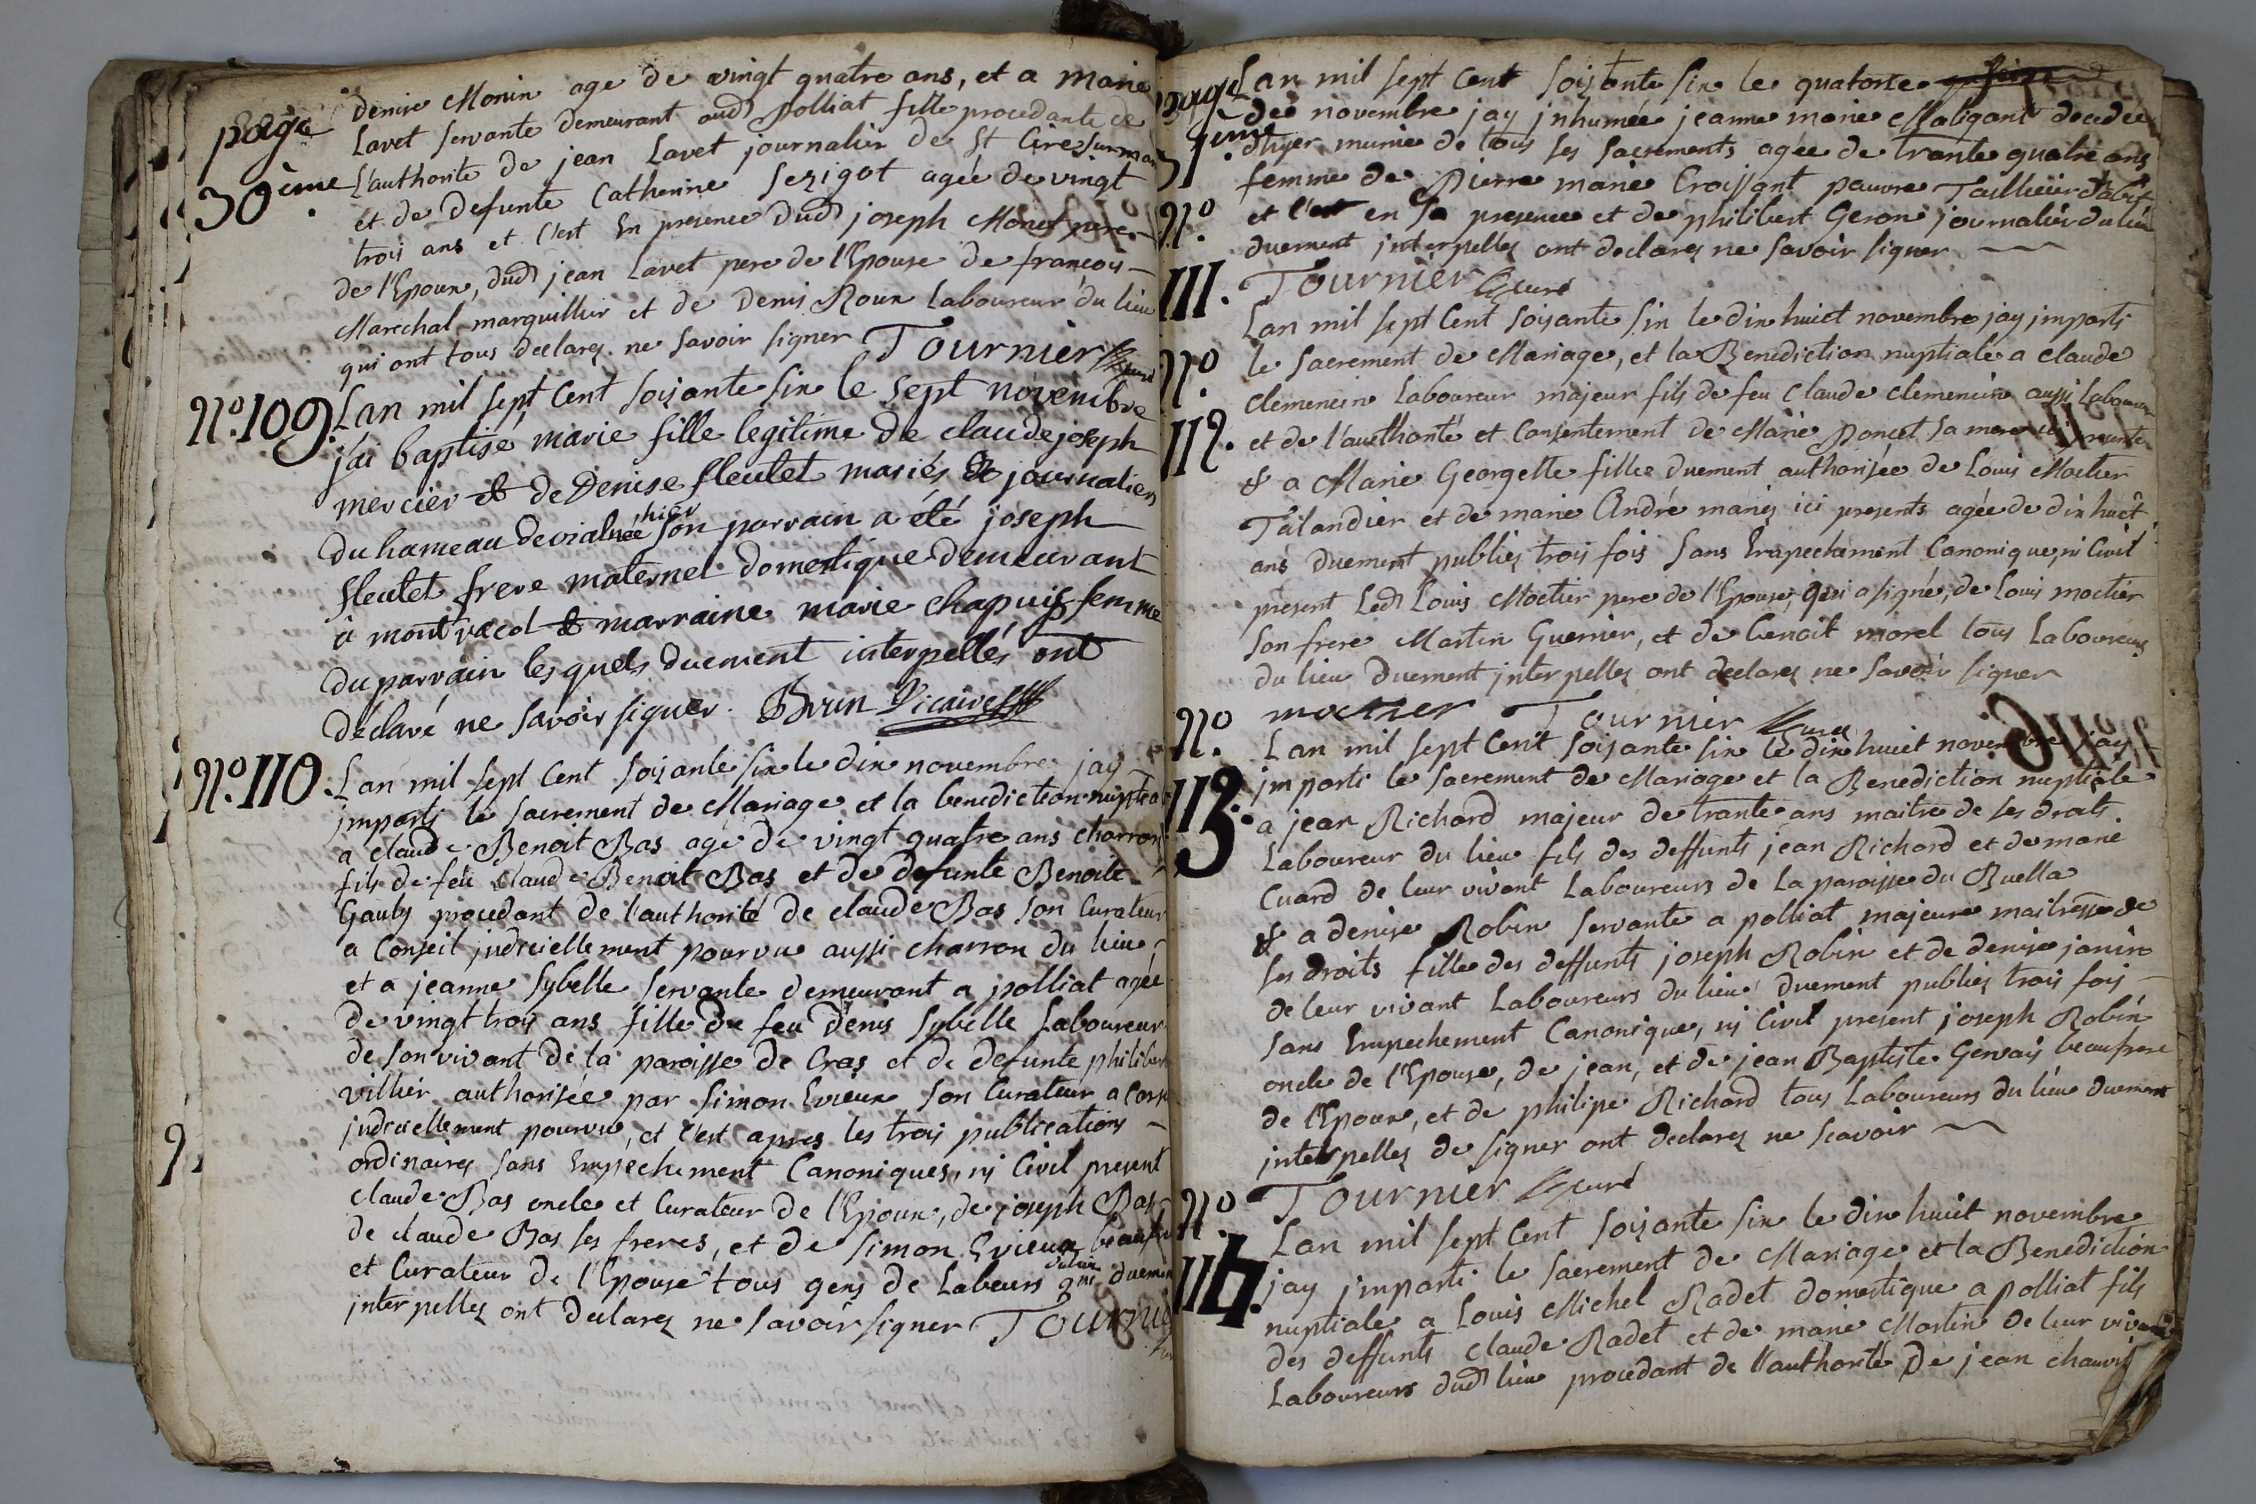 page
30ème
denise Monin age de vingt quatre ans, et a marie
Lavet servante demeurant aud polliat fille procedante de
L'authorité de jean Lavet journalier de St Cire sur
et de defunte Catherine Serigot agée de vingt
trois ans et c'est En presence dud joseph Monet pere
de l'Epoux, dud jean Lavet pere de l'Epouse de françois
Marechal marguillier et de Denis Roux Laboureur du lieu
qui ont tous declarez ne savoir signer Tournier curé
No. 109.
Lan mil sept cent soixante six le sept novembre
j'ai baptisé marie fille legitime de claude joseph
mercier & de Denise fleutet mariés & journaliers
du hameau de vial née hier son parrain a été joseph
fleutet frere maternel domestique demeurant
à montracol & marraine marie chapuis femme
du parrain lesquels duement interpellés ont
déclaré ne savoir signer. Brun Vicaire
No. 110.
Lan mil sept cent soixante six le dix novembre jay
imparti le sacrement de Mariage et la benediction
a claude Benoit Bas age de vingt quatre ans charron
fils de feu Claude Benoit Bas et de defunte Benoite
Gauby procedant de l'authorité de claude Bas son Curateur
a Conseil judiciellement pourvu aussi charron du lieu
et a jeanne Sybelle servante demeurant a polliat agée
de vingt trois ans fille de feu Denis Sybelle Laboureur
de son vivant de la paroisse de Cras et de defunte
villier authorisée par Simon Evieux son Curateur a
judiciellement pourvu, et c'est apres les trois publications
ordinaires sans Empechement Canoniques, ny Civil present
claude Bas oncle et Curateur de l'Epoux, de joseph Bas
de claude Bas ses freres, et de Simon Evieux
et Curateur de l'Epouse tous gens de Labeurs duement
interpellez ont declarez ne savoir signer Tournier
page
31ème
Lan mil sept Cent soixante six le quatorze
de novembre jay inhumée jeanne marie Maligant decedée
dhyer munie de tous ses sacrements agée de trante quatre ans
femme de Pierre marie Croissant pauvre Tailleur dabit
et c'est en sa presence et de philibert Geron journalier du lieu
duement interpellez ont declarez ne savoir signer
Tournier curé
No
111.
Lan mil sept Cent soixante six le dix huict novembre jay imparti
le sacrement de Mariage, et la Benediction nuptiale a claude
clemencin Laboureur majeur fils de feu Claude clemencin aussi Laboureur
et de l'authorité et Consentement de Marie Poncet sa mere
& a Marie Georgette fille duement authorisée de Louis Moctier
Tailandier et de marie André mariez ici presents agée de dix huict
ans duement publiez trois fois sans Empechement Canonique, ni Civil
present Led Louis Moctier pere de l'Epouse, qui a signé, de Louis moctier
son frere Martin Guerrier, et de benoit morel tous Laboureurs
du lieu duement interpellez ont declarez ne savoir signer
moctier Tournier curé
No
112.
No
113.
Lan mil sept Cent soixante six le dix huict novembre jay
imparti le sacrement de Mariage et la Benediction nuptiale
a jean Richard majeur de trante ans maitre de ses droits
Laboureur du lieu fils des deffunts jean Richard et de marie
Cuard de leur vivant Laboureurs de la paroisse du Buella
& a denise Robin servante a polliat majeure maitresse de
ses droits fille des deffunts joseph Robin et de denise janin
de leur vivant Laboureurs du lieu duement publiez trois fois
sans Empechement Canonique, ny Civil present joseph Robin
oncle de l'Epouse, de jean, et de jean Baptiste Gervais beaufrere
de l'Epoux, et de philipe Richard tous Laboureurs du lieu duement
interpellez de signer ont declarez ne scavoir
Tournier curé
No
114.
Lan mil sept Cent soixante six le dix huict novembre
jay imparti le sacrement de Mariage et la Benediction
nuptiale a Louis Michel Radet domestique a polliat fils
des deffunts claude Radet et de marie Martin de leur vivant
Laboureurs dud lieu procedant de l'authorité de jean